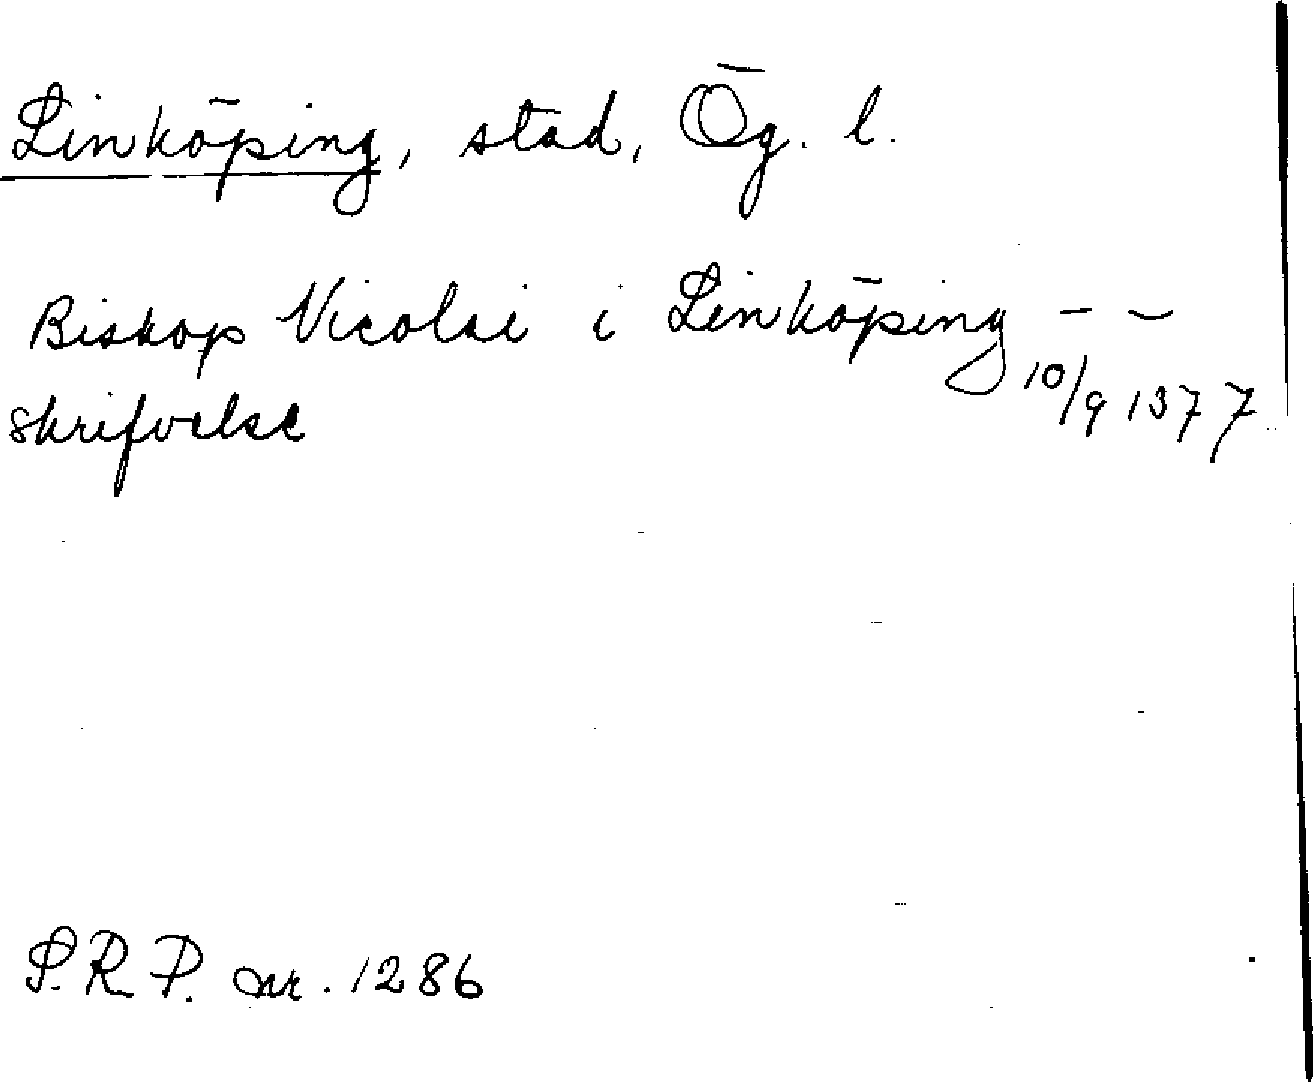 Linköping, stad, Ög. l.
Biskop Nicolai i Linköping - -
skrifvelse 10/9 1377
S.R.P. nr. 1286